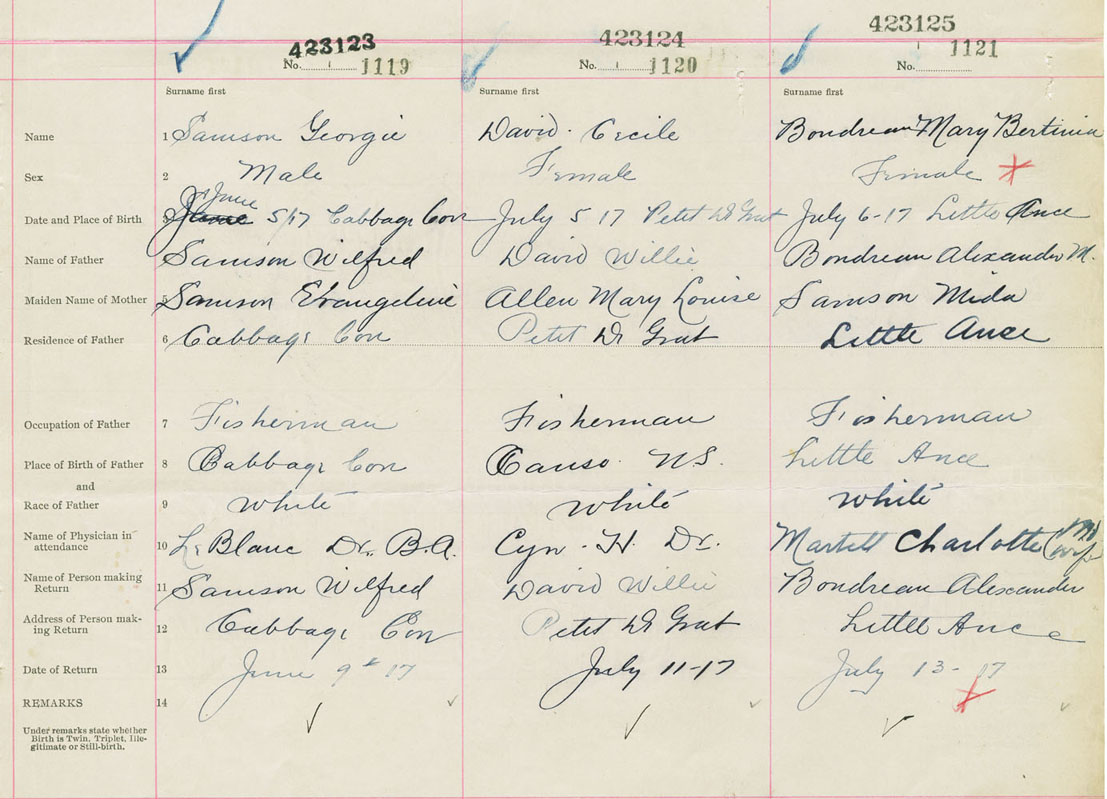 423123 423124 423125
No. 1119 No. 1120 No. 1121
Surname first Surname first Surname first
Name 1 Samson Georgie David Cecile Boudreau Mary Bertinia
Sex 2 Male Female Female
Date and Place of Birth 3 June June 5/17 Cabbage Cove July 5 17 Petit De Grat July 6-17 Little Ance
Name of Father Samson Wilfred David Willie Boudreau Alexander M.
Maiden Name of Mother 5 Samson Evangeline Allen Mary Louise Samson Mida
Residence of Father 6 Cabbage Cove Petit De Grat Little Ance
Occupation of Father 7 Fisherman Fisherman Fisherman
Place of Birth of Father 8 Cabbage Cove Canso NS. Little Ance
and
Race of Father 9 White White White
Name of Physician in
attendance 10 Le Blanc Dr. B.A. Cyn. H. Dr. Martell Charlotte
Name of Person making
Return 11 Samson Wilfred David Willie Boudreau Alexander
Address of Person mak-
ing Return 12 Cabbage Cove Petit De Grat Little Ance
Date of Return 13 June 9th 17 July 11-17 July 13-17
REMARKS 14
Under remarks state whether
Birth is Twin, Triplet, Ille-
gitimate or Still-birth.